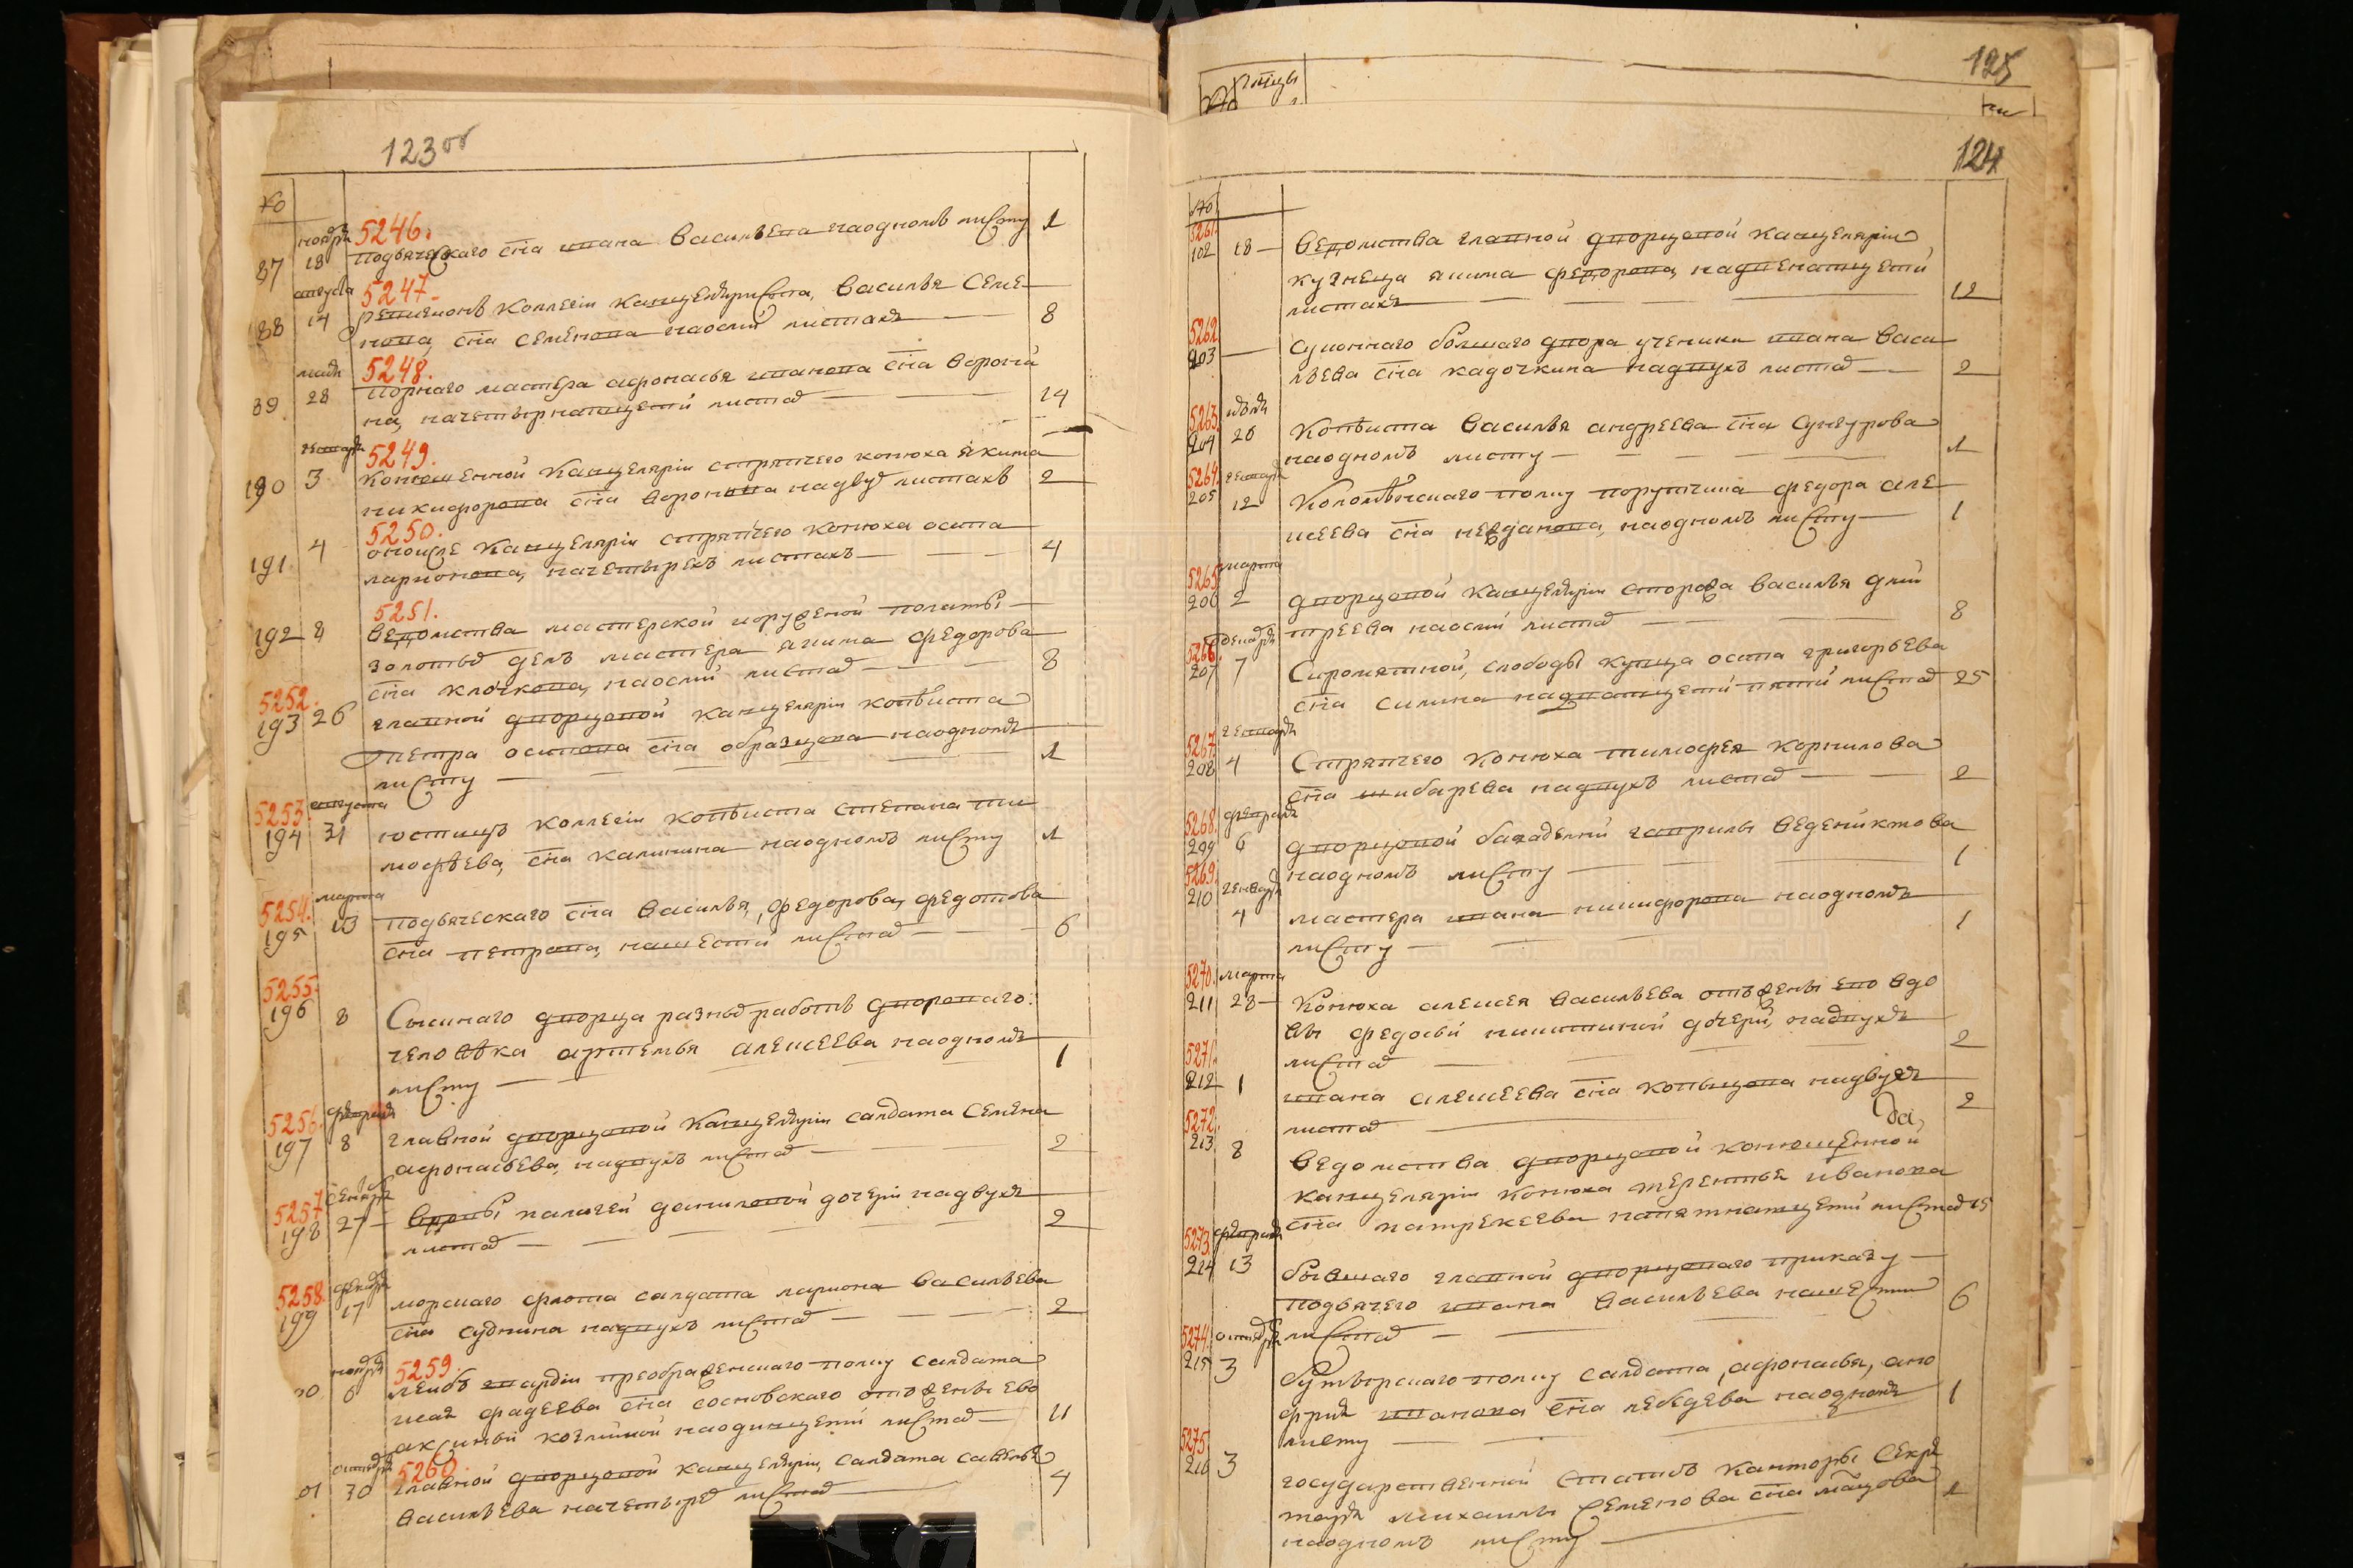 123 об
№
87 ноября 18 5246.
подьяческаго сна ивана васильева наодномъ листу 1
88 августа 14 5247.
ревизионъ коллегіи канцеляриста, василья семе
нова, сна семенова наосми листахъ 8
89 маія 28 5248.
порнаго мастера афонасья иванова сна ворони
на, начетырнатцети листах 14
190 генваря 3 5249.
конюшенной канцеляріи стряпчего конюха якима
никифорова сна воронина надвух листахъ 2
191 4 5250.
оноиже канцеляріи стряпчего конюха осипа
ларионова, начетырехъ листахъ 4
192 8 5251.
ведомства мастерской иоружеиной полаты
золотых делъ мастера якима федорова
сна клочкова, наосми листах 8
5252.
193 26 главной дворцовой канцеляріи копеиста
петра осипова сна образцова наодномъ
листу 1
5253. августа
194 31 юстицъ коллегіи копеиста степана ти
мофеева, сна калинина наодномъ листу 1
5254. марта
195 13 подьяческаго сна василья, федорова, федотова
сна петрова, нашести листах 6
5255.
196 8 Сытнаго дворца разных работъ дворового
человека артемья алексеева наодномъ
листу 1
5256. февраля
197 8 главной дворцовой канцеляріи салдата семена
афонасьева, надвухъ листах 2
5257.
198 27 данилевой дочери надвухъ
листах 2
5258. декабря
199 17 морскаго флота салдата лариона васильева
сна суднина надвухъ листах 2
ноября 6 5259.
лейбъ гвардіи преображенскаго полку салдата
исая фадеева сна сосновскаго отъ жены ево
аксиньи козминой наодинцети листах 11
01 октября 30 5260.
главной дворцовой канцеляріи, салдата савелья
васильева начетырех листах 4
125
124
№
5261.
102 18 ведомства главной дворцовой канцеляріи
кузнеца якима федорова, надвенатцети
листахъ 12
5262.
203 суконнаго большаго двора ученика ивана васи
льева сна кадочкина надвухъ листах 2
5263. июля
204 26 Копеиста василья андреева сна сунгурова
наодномъ листу 1
5264. генваря
205 12 Коломенскаго полку порутчика федора але
ксеева сна невзанова, наодномъ листу 1
5265. марта
206 2 дворцовой канцеляріи сторожа василья дми
треева наосми листах 8
5266 декабря
207 7 Сыромятной, слободы купца осипа григорьева
сна силина надватцети пяти листах 25
5267. генваря
208 4 Стряпчего конюха тимофея корнилова
сна шибарева надвухъ листах 2
5268. февраля
209 6 дворцовой богадельни гаврилы веденихтова
наодномъ листу 1
5269.
210 генваря 4 мастера ивана никифорова наодномъ
листу 1
5270. марта
211 28 Конюха алексея васильева отъ жены ево вдо
вы федосьи никитиной дочери, надвухъ
листах 2
5271.
212 1 ивана алексеева сна копьицова надвухъ
листах 2
5272.
213 8 ведомства дворцовой конюшенной
канцеляріи конюха терентья иванова
сна патрекеева напятнатцети листах 15
5273. февраля
214 13 бывшаго главной дворцоваго приказу
подьячего ивана васильева нашести
листах 6
5274. октября
215 3 бутырскаго полку салдата, афонасья, ано
фрия иванова сна лебедева наодномъ
листу 1
5275.
216 3 государственной статсъ канторы секре
таря михаилы семенова сна
наодномъ листу 1